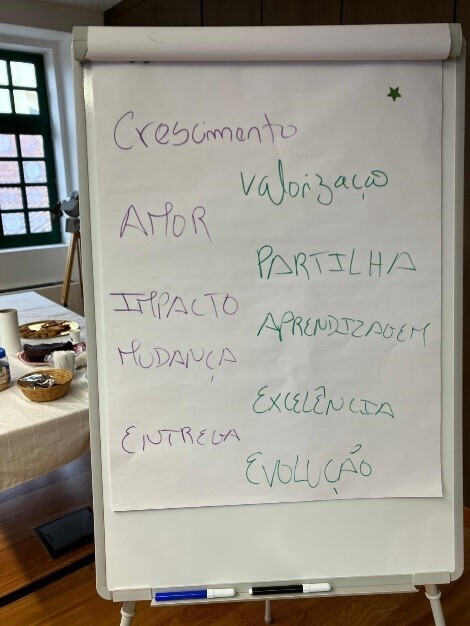 Crescimento
Valorização
AMOR
PARTILHA
IMPACTO
APRENDIZAGEM
MUDANÇA
EXCELÊNCIA
ENTREGA
EVOLUÇÃO